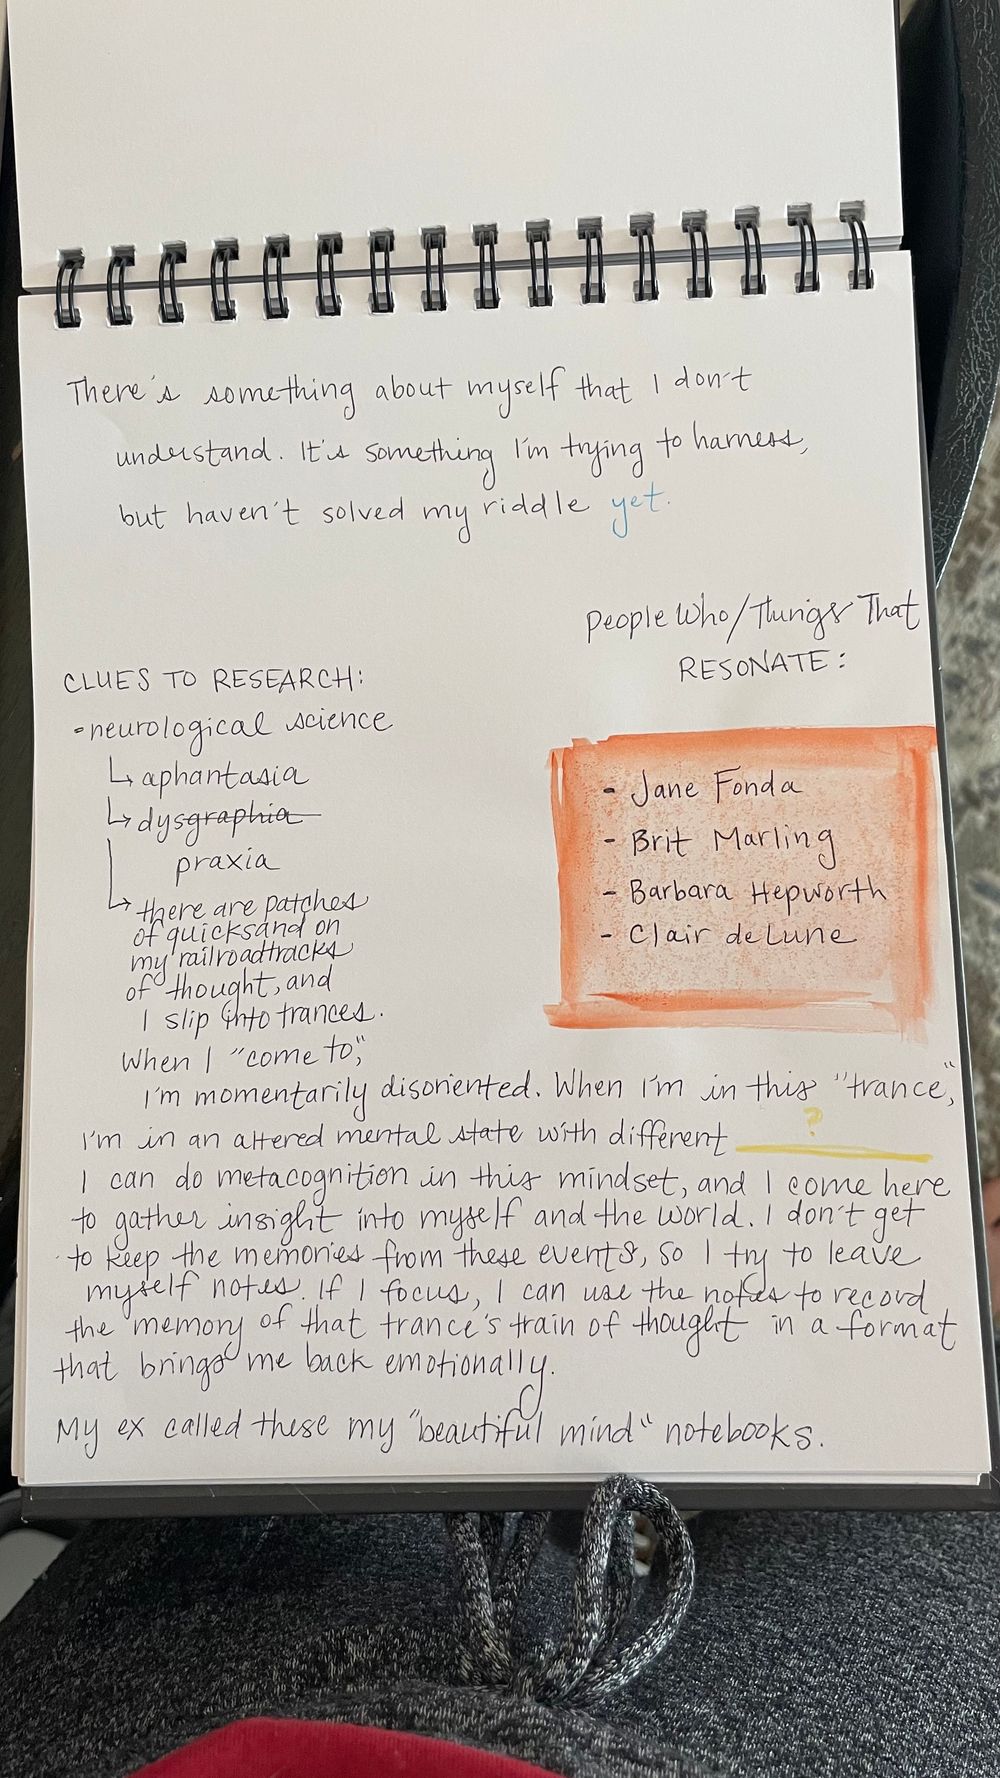 There's something about myself that I don't
understand. It's something I'm trying to harness,
but haven't solved my riddle yet.
People Who/Things That
RESONATE:
- Jane Fonda
- Brit Marling
- Barbara Hepworth
- Clair de Lune
CLUES TO RESEARCH:
- neurological science
↳ aphantasia
↳ dysgraphia
praxia
↳ there are patches
of quicksand on
my railroadtracks
of thought, and
I slip into trances.
When I "come to,"
I'm momentarily disoriented. When I'm in this "trance,"
I'm in an altered mental state with different ?
I can do metacognition in this mindset, and I come here
to gather insight into myself and the world. I don't get
to keep the memories from these events, so I try to leave
myself notes. If I focus, I can use the notes to record
the memory of that trance's train of thought in a format
that brings me back emotionally.
My ex called these my "beautiful mind" notebooks.